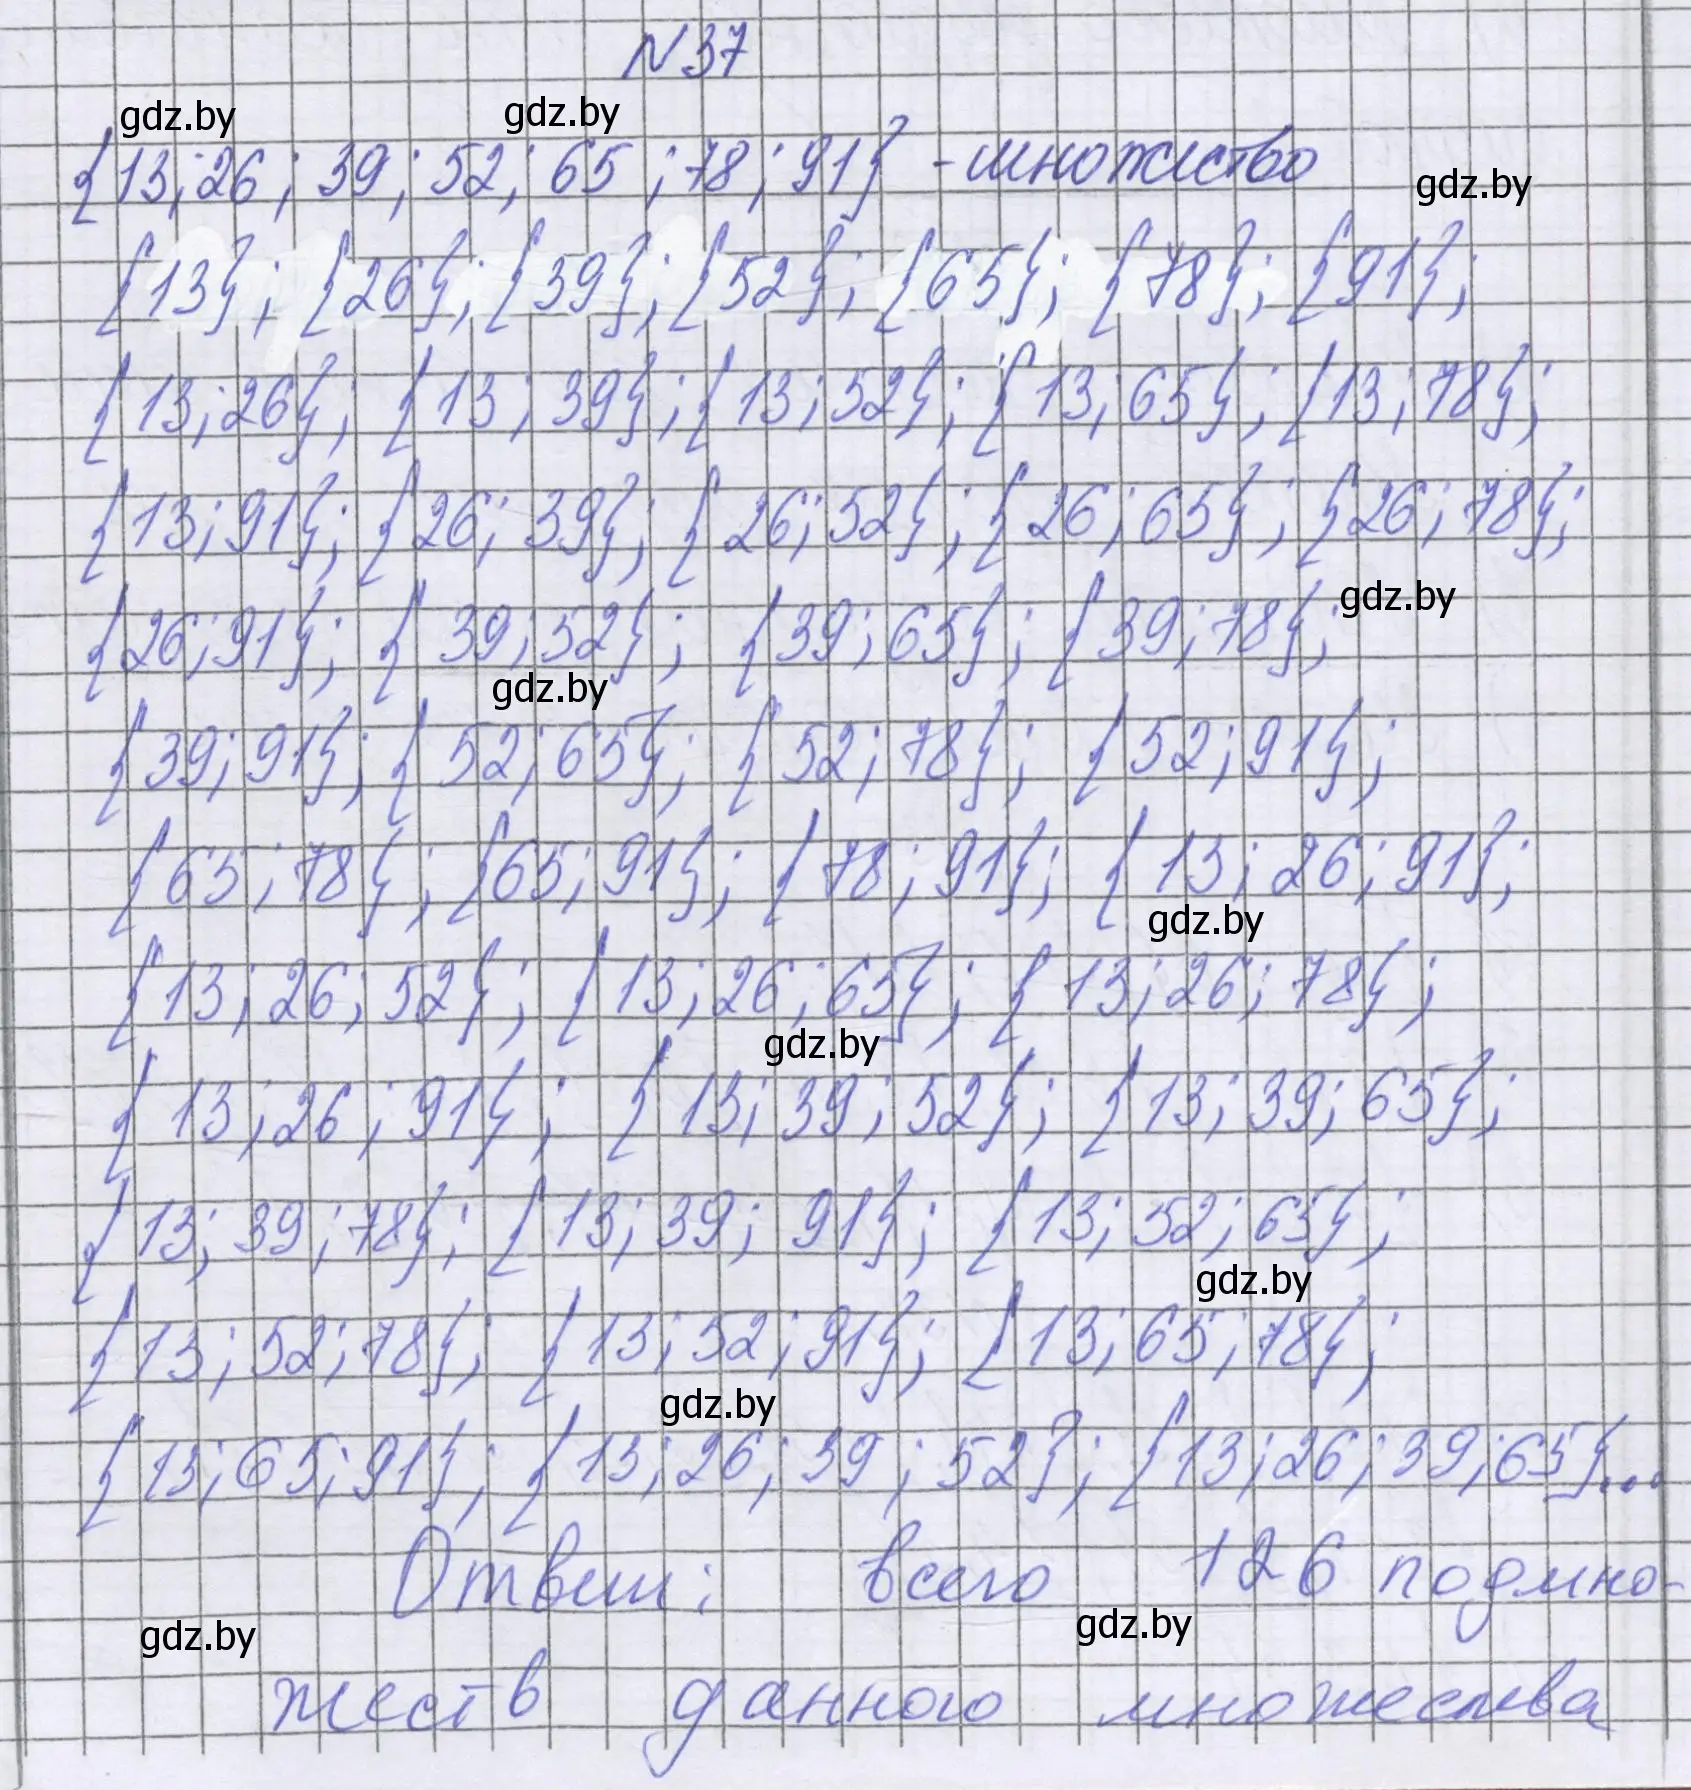 N 37
gdz.by gdz.by
{13; 26; 39; 52; 65; 78; 91} - множество
gdz.by
{13}; {26}; {39}; {52}; {65}; {78}; {91};
{13; 26}; {13; 39}; {13; 52}; {13; 65}; {13; 78};
{13; 91}; {26; 39}; {26; 52}; {26; 65}; {26; 78};
gdz.by
{26; 91}; {39; 52}; {39; 65}; {39; 78};
gdz.by
{39; 91}; {52; 65}; {52; 78}; {52; 91};
{65; 78}; {65; 91}; {78; 91}; {13; 26; 91};
gdz.by
{13; 26; 52}; {13; 26; 65}; {13; 26; 78};
gdz.by
{13; 26; 91}; {13; 39; 52}; {13; 39; 65};
{13; 39; 78}; {13; 39; 91}; {13; 52; 65};
gdz.by
{13; 52; 78}; {13; 52; 91}; {13; 65; 78};
gdz.by
{13; 65; 91}; {13; 26; 39; 52}; {13; 26; 39; 65}...
Ответ: всего 126 подмно-
gdz.by gdz.by
жеств данного множества